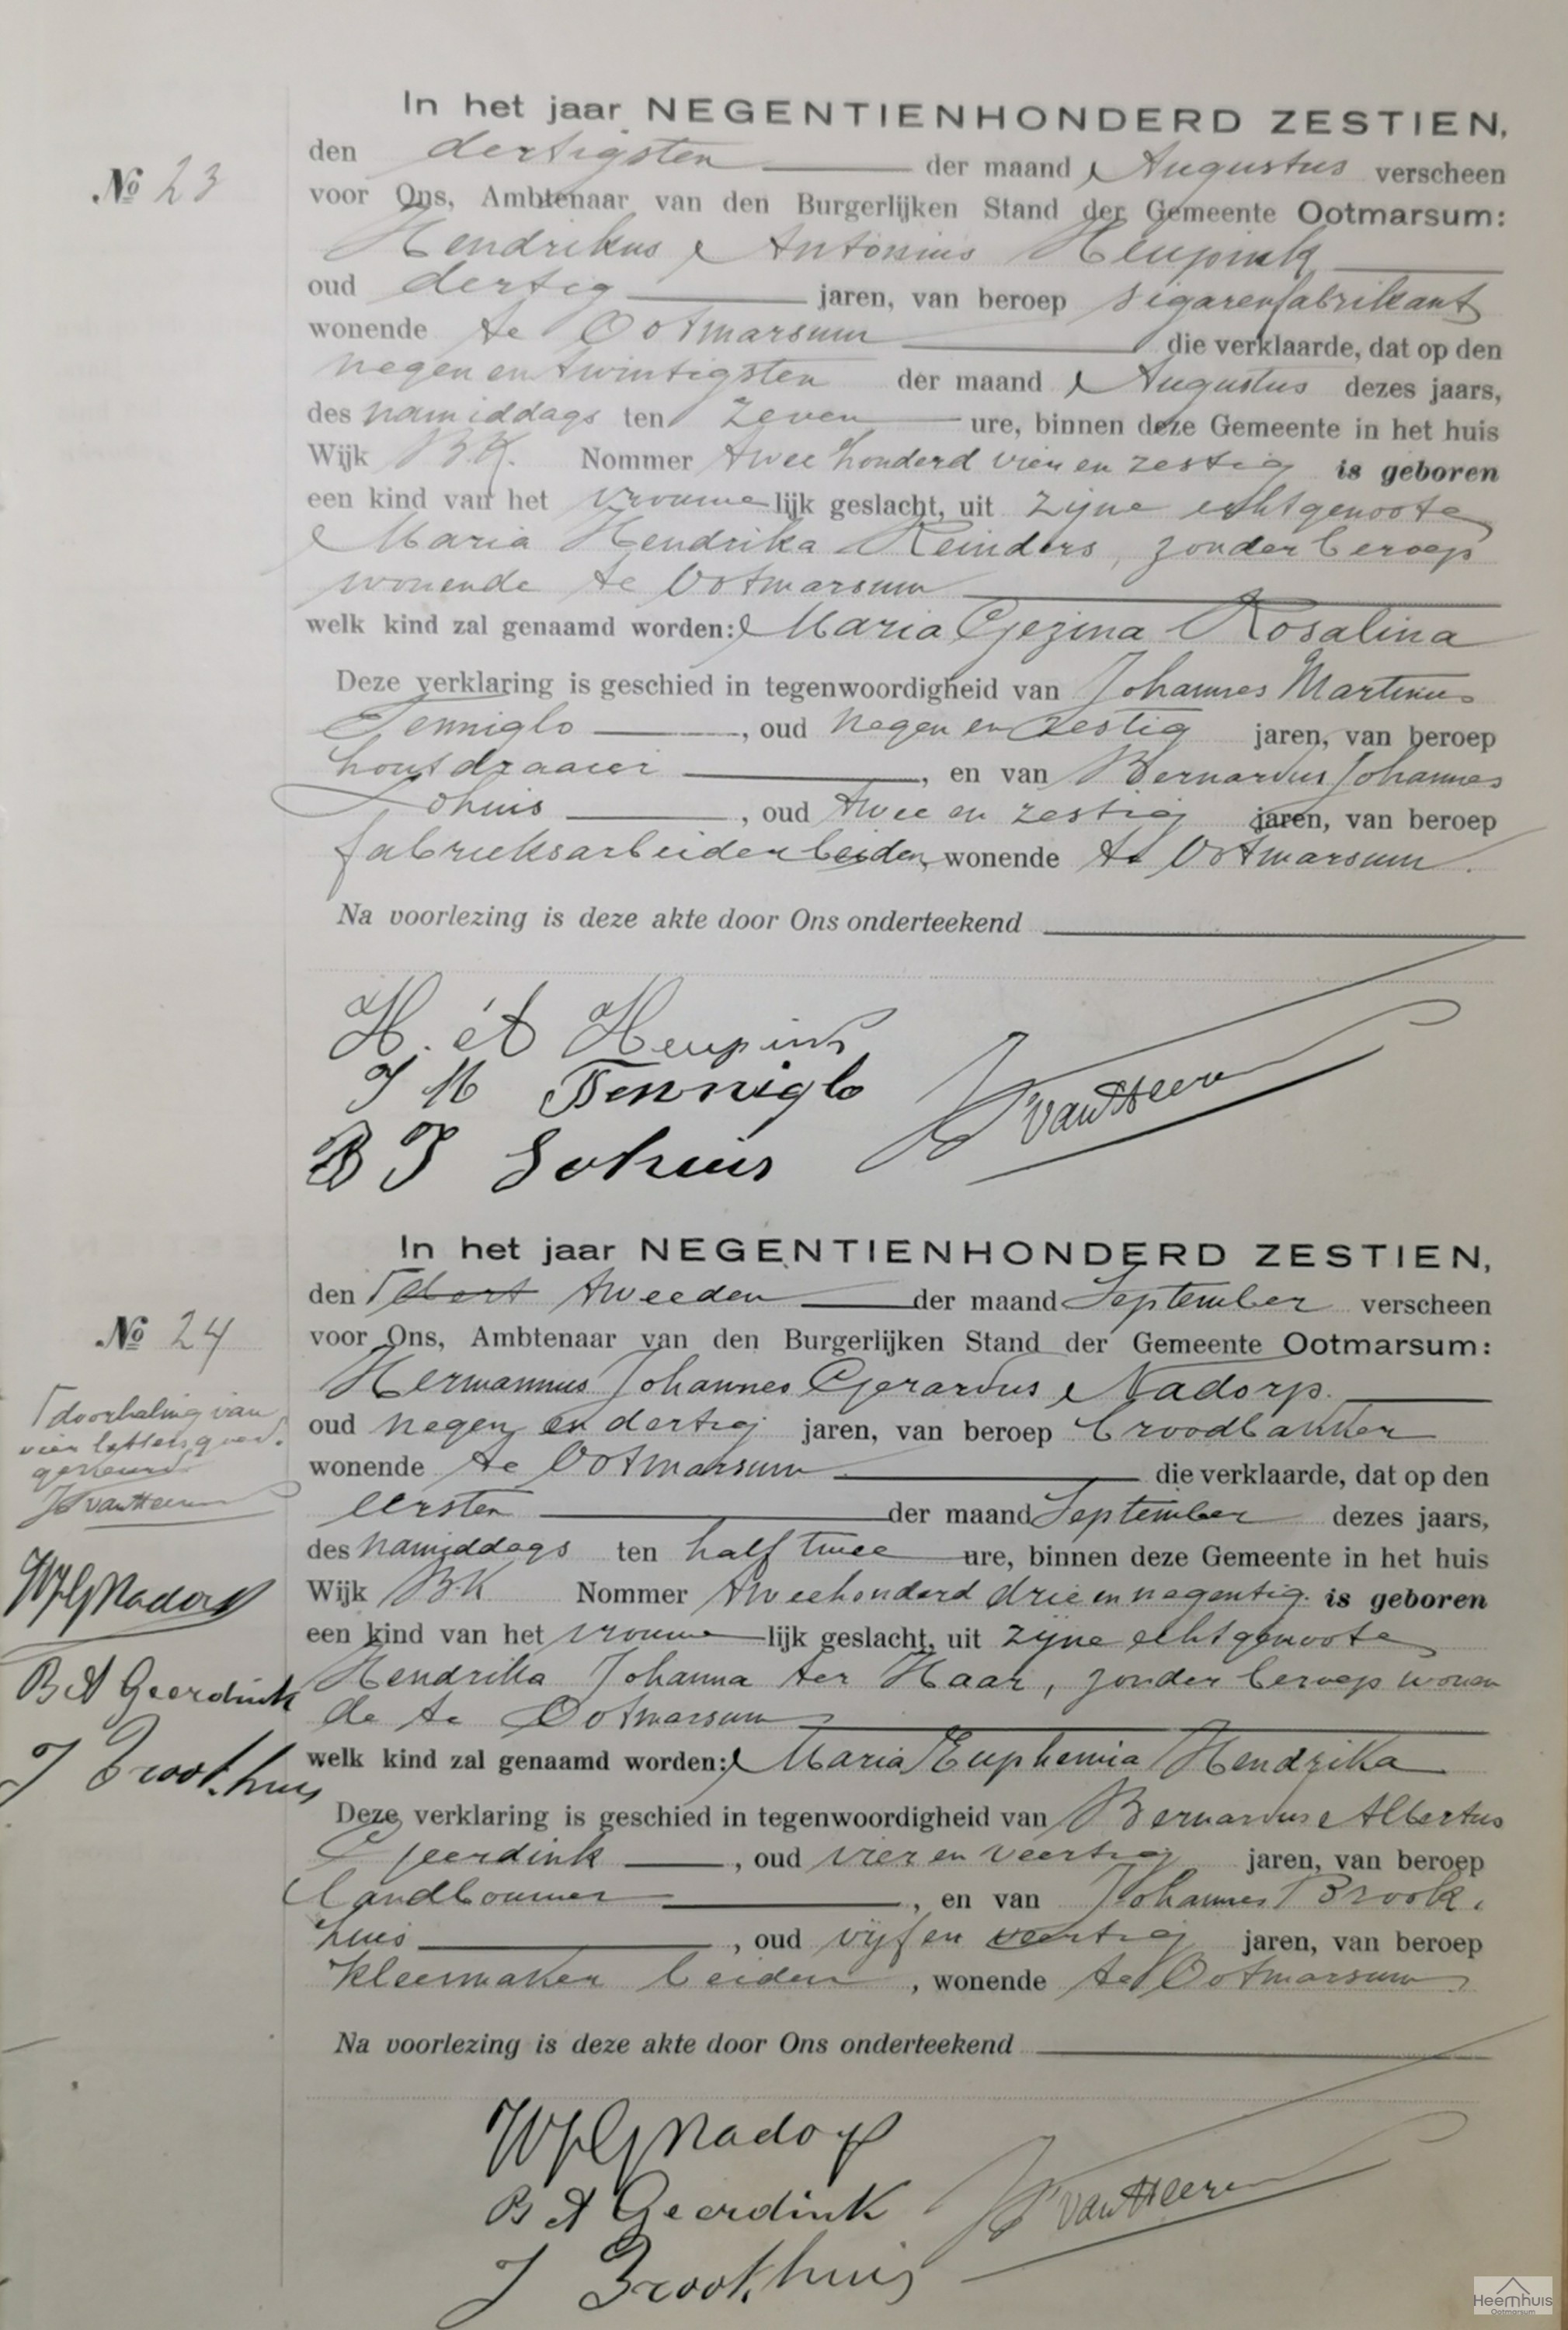 In het jaar NEGENTIENHONDERD ZESTIEN,
den dertigsten der maand Augustus verscheen
№ 23
voor Ons, Ambtenaar van den Burgerlijken Stand der Gemeente Ootmarsum:
Hendrikus Antonius Heupink
oud dertig jaren, van beroep sigarenfabrikant
wonende te Ootmarsum die verklaarde, dat op den
negen en twintigsten der maand Augustus dezes jaars,
des namiddags ten zeven ure, binnen deze Gemeente in het huis
Wijk B.K. Nommer twee honderd vier en zestig is geboren
een kind van het vrouwelijk geslacht, uit zijne echtgenoote
Maria Hendrika Reinders, zonder beroep
wonende te Ootmarsum
welk kind zal genaamd worden: Maria Gezina Rosalina
Deze verklaring is geschied in tegenwoordigheid van Johannes Martinus
Tenniglo, oud negen en zestig jaren, van beroep
houtdraaier, en van Bernardus Johannes
Lohuis, oud twee en zestig jaren, van beroep
fabrieksarbeider beiden, wonende te Ootmarsum.
Na voorlezing is deze akte door Ons onderteekend
H. A Heupink
J M Tenniglo
van Heeren
B J Lohuis
In het jaar NEGENTIENHONDERD ZESTIEN,
den tweeden der maand September verscheen
№ 24
voor Ons, Ambtenaar van den Burgerlijken Stand der Gemeente Ootmarsum:
Hermannus Johannes Gerardus Nadorp.
doorhaling van
vier letters goed-
gekeurd
oud negen en dertig jaren, van beroep broodbakker
wonende te Ootmarsum die verklaarde, dat op den
van Heeren
eersten der maand September dezes jaars,
des namiddags ten half twee ure, binnen deze Gemeente in het huis
Wijk B.K Nommer tweehonderd drie en negentig. is geboren
HJG Nadorp
een kind van het vrouwelijk geslacht, uit zijne echtgenoote
B A Geerdink
Hendrika Johanna ter Haar, zonder beroep wonen
de te Ootmarsum
J Brookhuis
welk kind zal genaamd worden: Maria Euphemia Hendrika
Deze verklaring is geschied in tegenwoordigheid van Bernardus Albertus
Geerdink, oud vier en veertig jaren, van beroep
landbouwer, en van Johannes Brook-
huis, oud vijf en veertig jaren, van beroep
kleermaker beiden, wonende te Ootmarsum
Na voorlezing is deze akte door Ons onderteekend
HJG Nadorp
B A Geerdink
van Heeren
J Brookhuis
Heemhuis
Ootmarsum